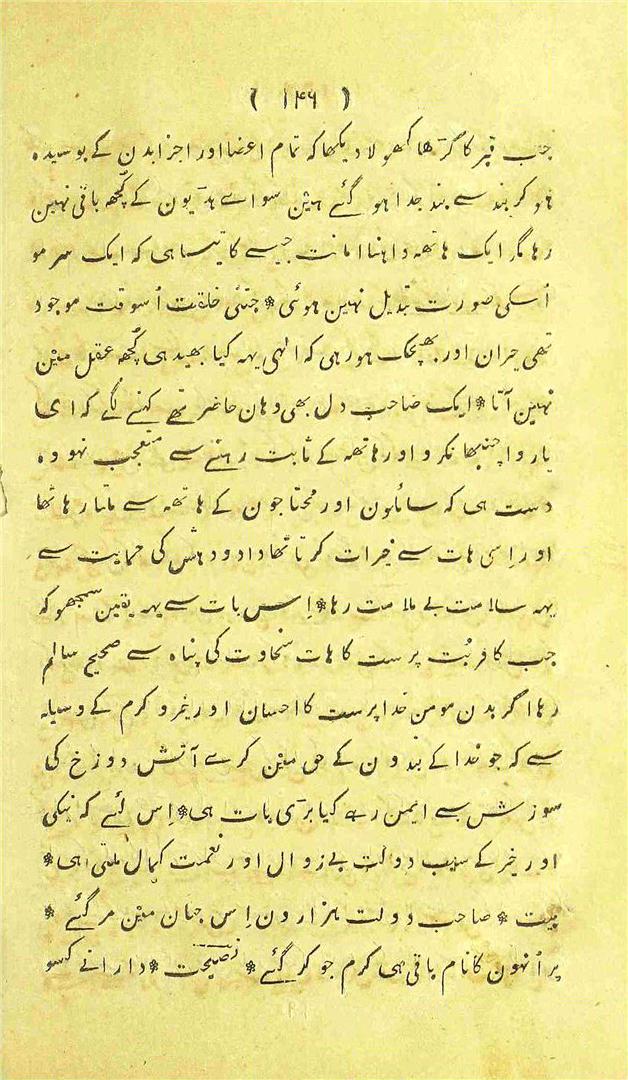 ( ۱۴۶ )
جب قبر کا گڑھا کھولا دیکھا کہ تمام اعضا اور اجزا بدن کے بوسیدہ
ہو کر بند سے بند جدا ہو گئے ہیں سواے ہڈیون کے کُچھ باقی نہین
رہا مگر ایک ہاتھہ داہنا امانت جیسے کا تیسا ہی کہ ایک سر مو
اُسکی صورت تبدیل نہین ہوئی * جتنی خلقت اُسوقت موجود
تھی حیران اور بھچک ہو رہی کہ الٰہی یہہ کیا بھید ہی کُچھ عقل مین
نہین آتا * ایک صاحب دل بھی وہان حاضر تھے کہنے لگے کہ ای
یارو اچنبھا نکرو اور ہاتھہ کے ثابت رہنے سے متعجب نہو وہ
دست ہی کہ سائلون اور محتاجون کے ہاتھہ سے ملتا رہا تھا
اور اِسی ہات سے خیرات کرتا تھا داد و دہش کی حمایت سے
یہہ سلامت بے ملامت رہا * اِس بات سے یہہ یقین سمجھو کہ
جب کافر بُت پرست کا ہات سخاوت کی پناہ سے صحیح سالم
رہا اگر بدن مومن خداپرست کا احسان اور خیر و کرم کے وسیلہ
سے کہ جو خدا کے بندون کے حق مین کرے آتش دوزخ کی
سوزش سے ایمن رہے کیا بڑی بات ہی * اِس لئے کہ نیکی
اور خیر کے سبب دولت بے زوال اور نعمت کمال ملتی ہی *
بیت * صاحب دولت ہزارون اِس جہان مین مر گئے *
پر اُنہون کا نام باقی ہی کرم جو کر گئے * نصیحت * دارا نے کسو